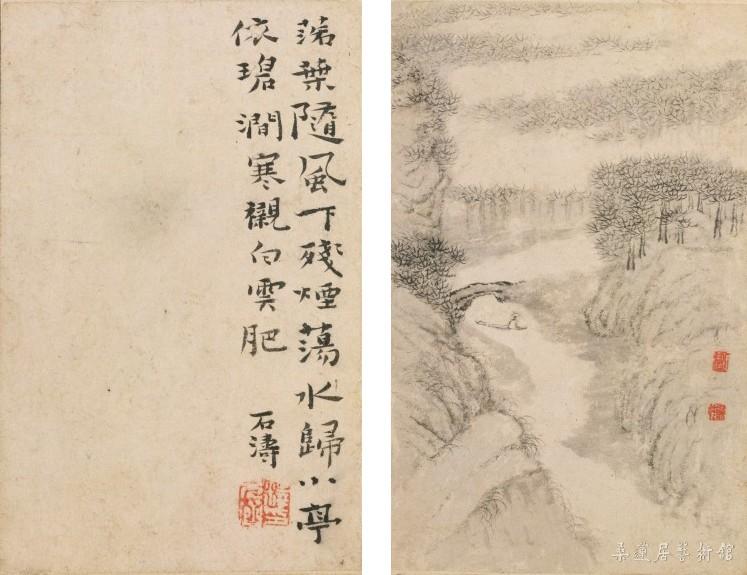 落葉隨風下殘煙蕩水歸小亭
依碧澗寒襯白雲肥
石濤
桑蓮居藝術館